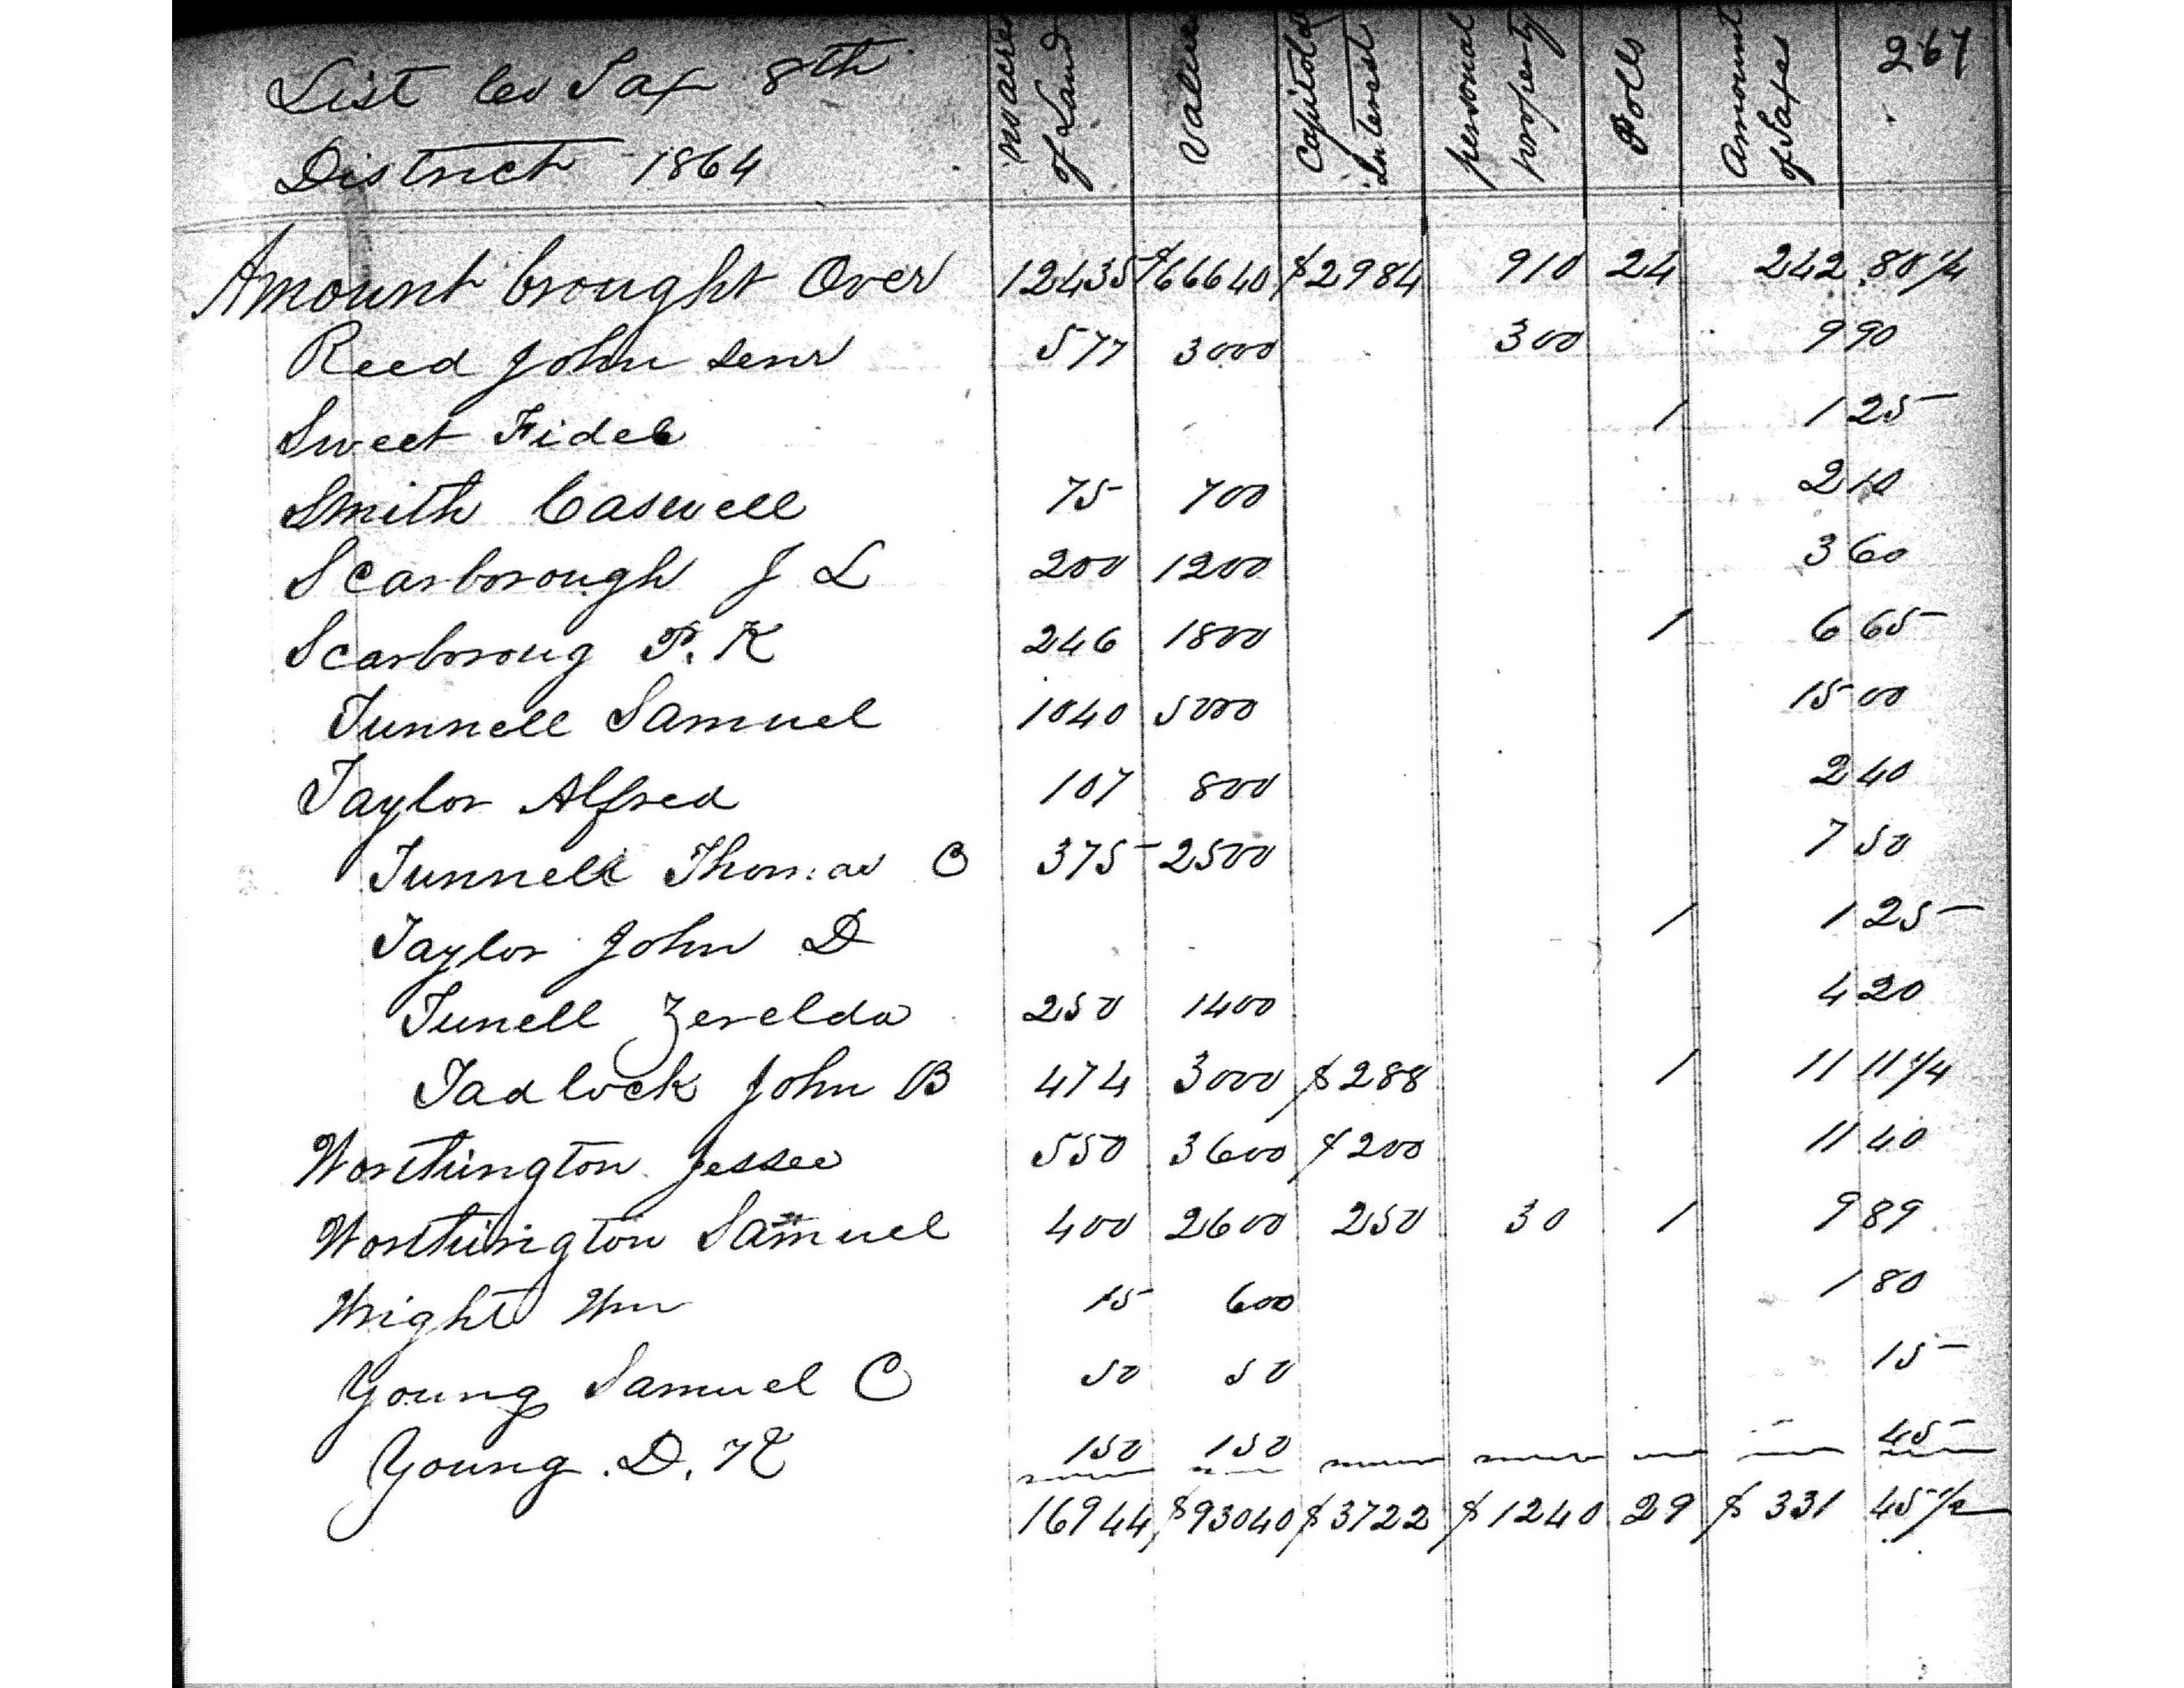 List Co Tax 8th
District 1864
No acres of Land
Value
Capitol & Interest
personal property
Polls
Amount of Taxes
267
Amount brought Over 12435 $66640 $2984 910 24 242 80 1/4
Reed John senr 577 3000 300 9 90
Sweet Fidele 1 1 25
Smith Caswell 75 700 2 10
Scarborough J L 200 1200 3 60
Scarboroug P. K 246 1800 1 6 65
Tunnell Samuel 1040 5000 15 00
Taylor Alfred 107 800 2 40
Tunnell Thomas C 375 2500 7 50
Taylor John D 1 1 25
Tunell Zerelda 250 1400 4 20
Tadlock John B 474 3000 $288 1 11 11 1/4
Worthington Jessee 550 3600 $200 11 40
Worthington Samuel 400 2600 250 30 1 9 89
Wright Wm 15 600 1 80
Young Samuel C 50 50 15
Young D. K 150 150 45
16944 $93040 $3722 $1240 29 $331 45 1/2